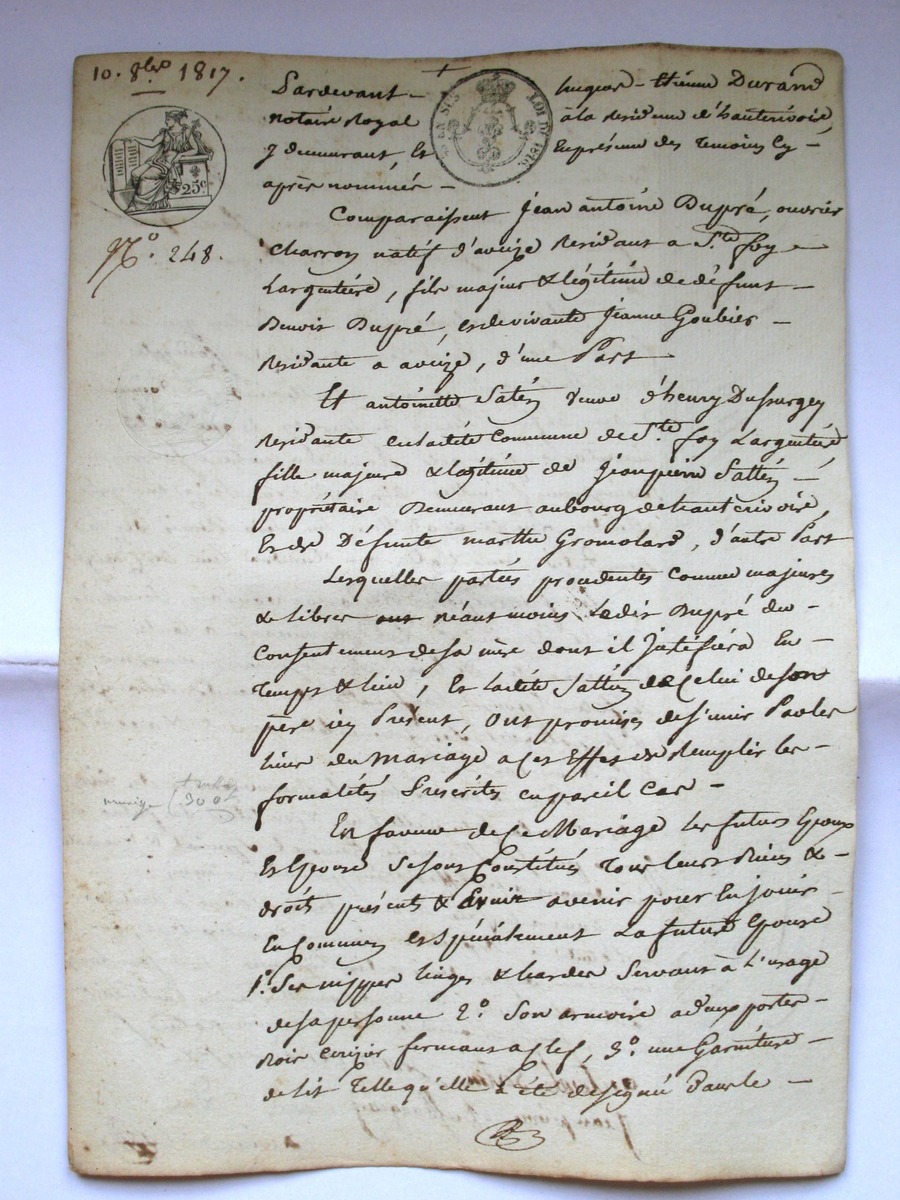 10. 8bre 1817.
Pardevant - hugues - étienne Durand
notaire Royal à la Résidence d'hauterivoire,
y demeurant, Et En présence des Temoins Cy
après nommés -
N.o 248.
25c
LOI DE 1816
Comparaissent Jean antoine Dupré, ouvrier
charron natif d'aveize Residant a S.te foy
Largentiére, fils majeur & légitime de défunt -
Benoit Dupré, et de vivante Jeanne Goubier -
Residante a aveize, d'une Part
Et antoinette Satin veuve d'henry Dussurgey
Residante en ladite Commune de S.te foy Largentiére
fille majeure & légitime de Jeanpierre Sattin -
propriétaire Demeurant aubourg de hauterivoire,
Et de Défunte marthe Gromolard, d'autre Part
Lesquelles parties procedentes Comme majeures
& libres ont néantmoins Ledit Dupré du -
Consentement de sa mère dont il Justifiera En -
Temps & lieu, Et Ladite Sattin de Celui de son
père icy Present, ont promises de s'unir Par les
liens du Mariage a Ces Effet de Remplir les -
formalités Prescrites en pareil Cas -
mariage 300
En faveur de Ce Mariage Les futurs Epoux
Et Epouse Se sont Constitués Tous leurs Biens & -
droits présents & avenir pour En jouir -
En Commun et Spécialement La future Epouse
1.o Ses nippes linges & hardes Servant à L'usage
de sa personne 2.o Son armoire a deux portes -
bois cerizier fermant a Clef, 3.o une Garniture -
de lit Telle qu'elle a été designée Dans le -